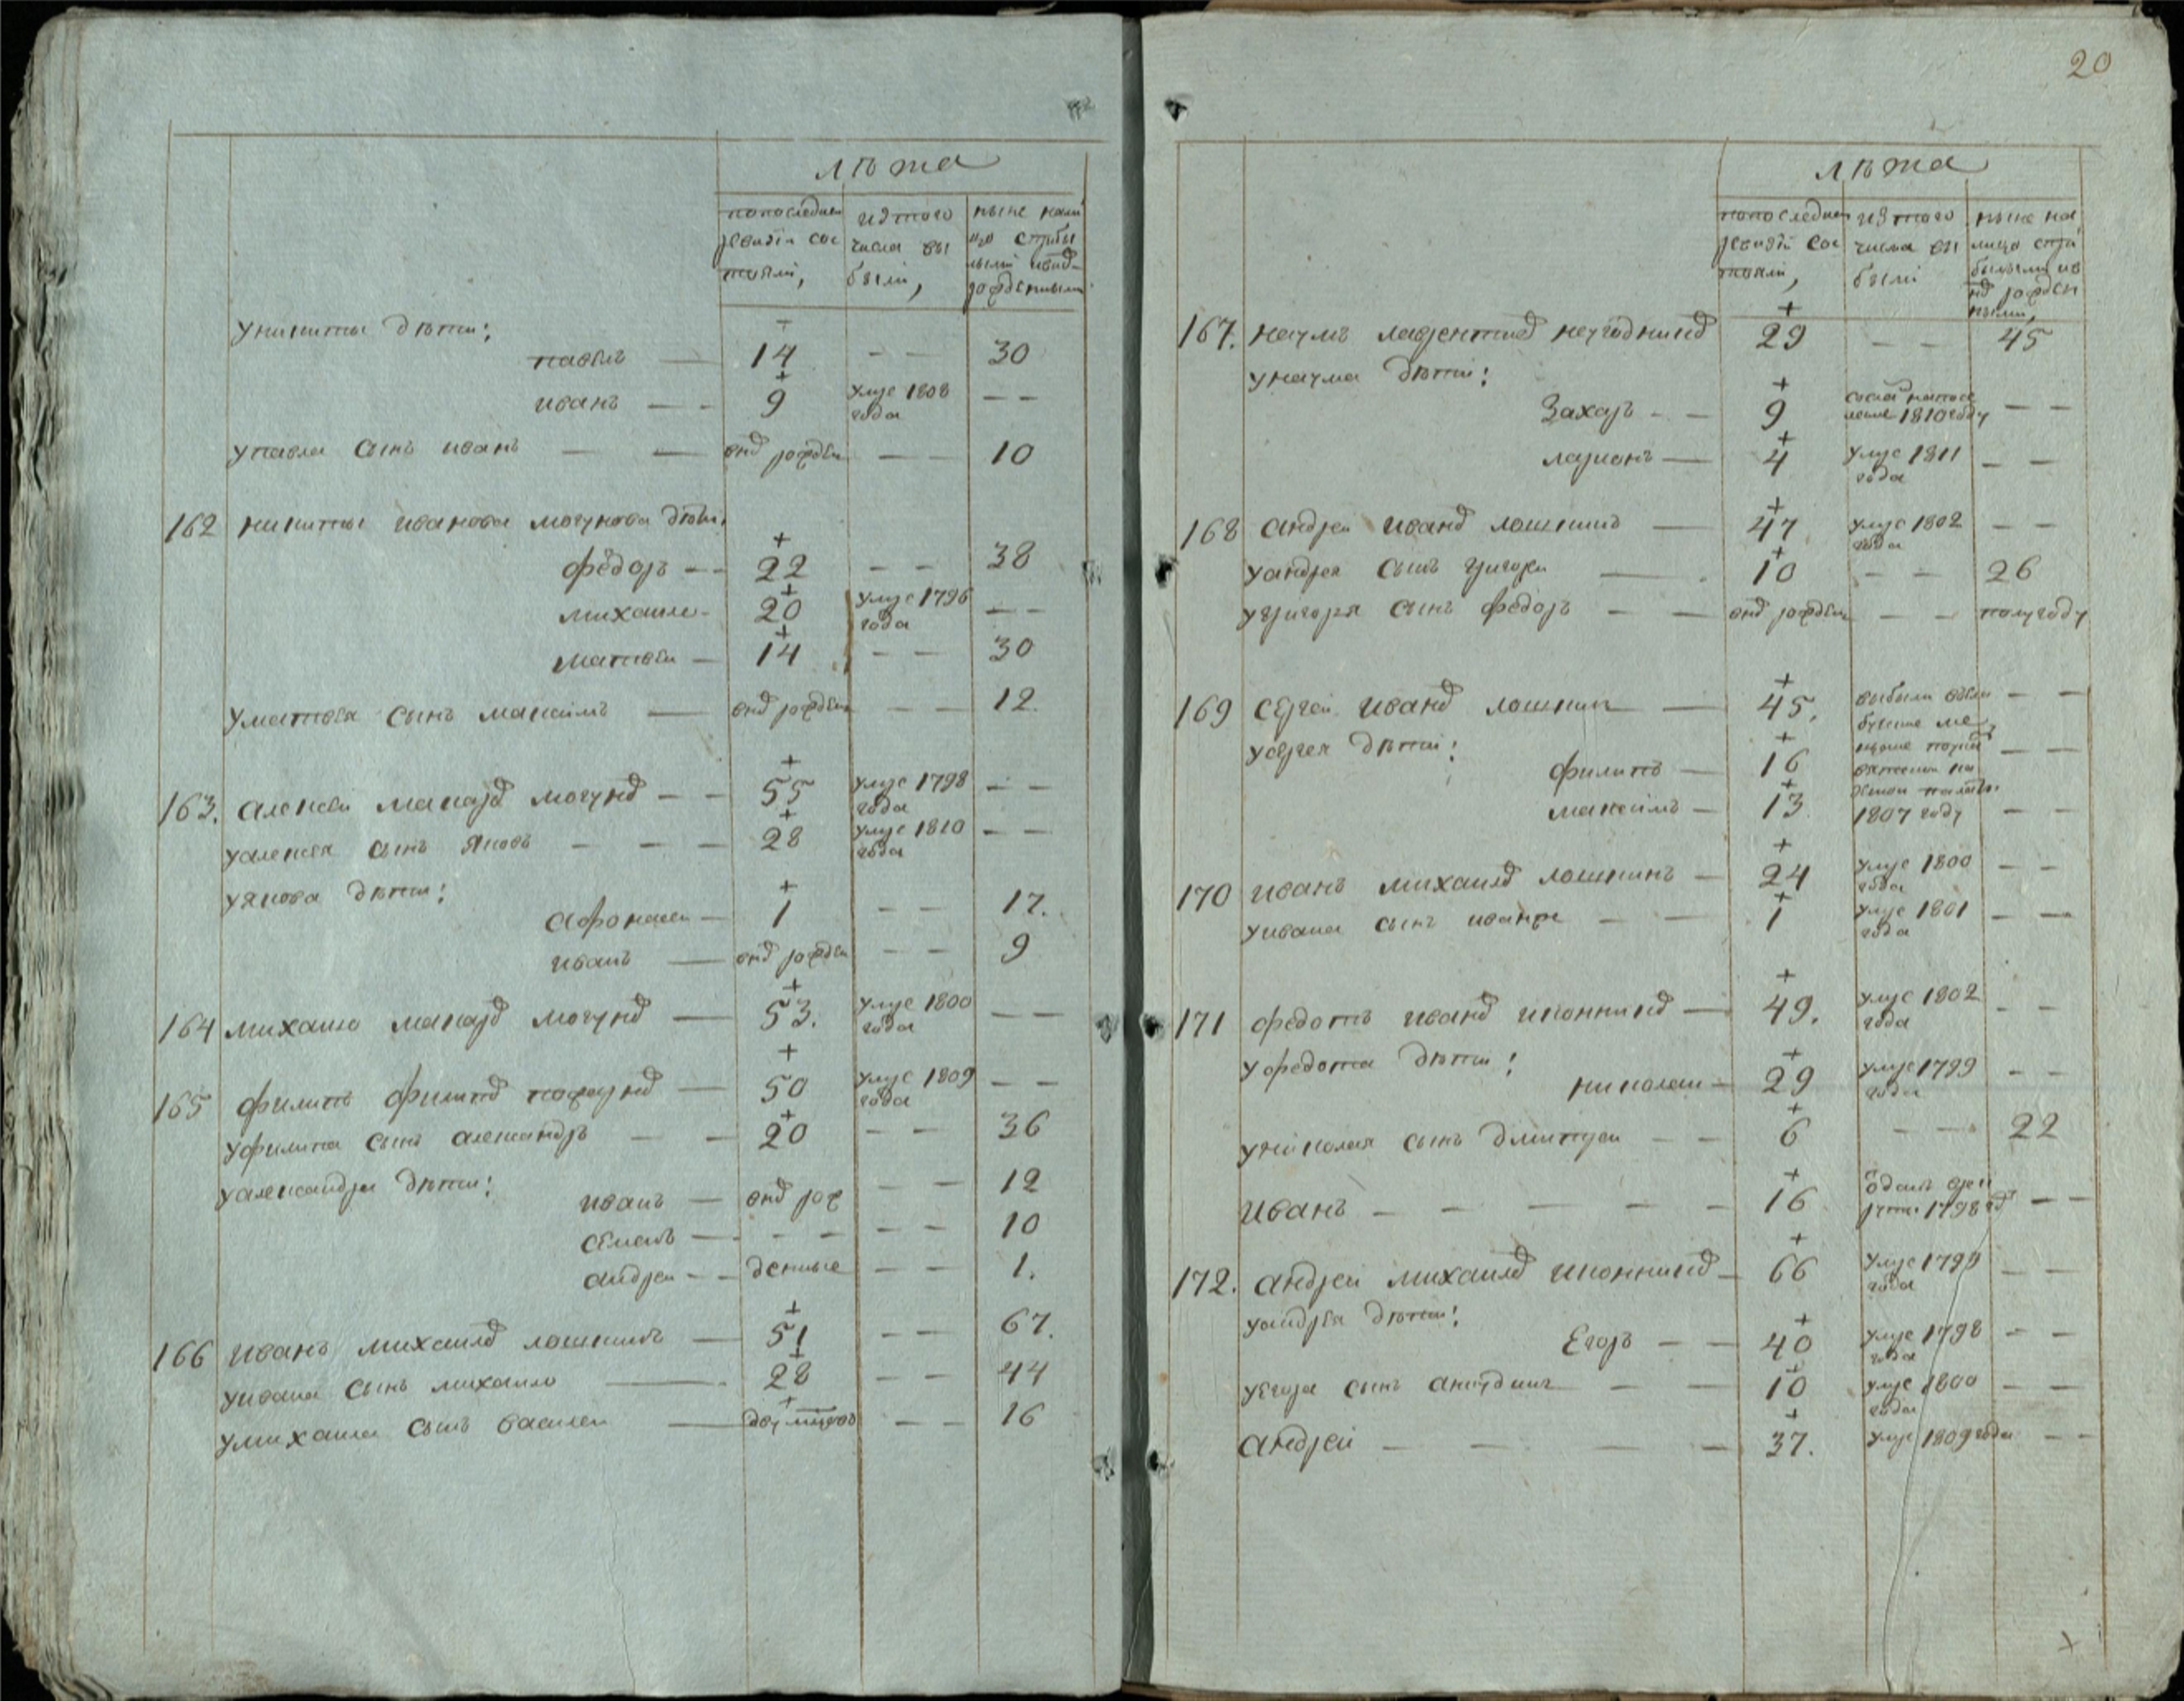 лѣта
попоследнеи ревизіи состояли,
изтого числа выбыли,
ныне налицо сприбылыми ивнов рожденными
уникиты дѣти:
павелъ — 14 — — 30
иванъ — — 9 умре 1808 года — —
упавла сынъ иванъ — — внов рожден — — 10
162 никиты иванова могунова дѣти.
фёдоръ — — 22 — — 38
михаило — 20 умре 1796 года — —
матвеи — 14 — — 30
уматвея сынъ максимъ — внов рожден — — 12.
163. алексеи макаров могунов — — 55 умре 1798 года — —
уалексея сынъ яковъ — — — 28 умре 1810 года — —
уякова дѣти:
афонасеи — 1 — — 17.
иванъ — внов рожден — — 9
164 михаило макаров могунов — 53. умре 1800 года — —
165 филипъ филипов — 50 умре 1809 года — —
уфилипа сынъ александръ — — 20 — — 36
уалександра дѣти:
иванъ — внов рож — — 12
семенъ — — — — — 10
андреи — — денные — — 1.
166 иванъ михаилов лошкинъ — 51 — — 67.
уивана сынъ михаило — 28 — — 44
умихаила сынъ василеи — — — 16
20
лѣта
попоследнеи ревизіи состояли,
изтого числа выбыли
ныне налицо сприбылыми ивнов рожденными,
167. наумъ лаврентиев неугодников 29 — — 45
унаума дѣти:
Захаръ — — 9 сослан напоселение 1810 году — —
ларионъ — 4 умре 1811 года — —
168 андреи иванов лошкинъ — 47 умре 1802 года — —
уандрея сынъ григореи — 10 — — 26
угригорья сынъ федоръ — — внов рожден — — полугоду
169 сергеи иванов лошкин — 45. выбыли 1807 году — —
усергея дѣти:
филипъ — 16 — —
максимъ — 13 — —
170 иванъ михаилов лошкинъ — 24 умре 1800 года — —
уивана сынъ иванже — — 1 умре 1801 года — —
171 федотъ иванов иконников — 49. умре 1802 года — —
уфедота дѣти:
николаи — 29 умре 1799 года — —
униколая сынъ дмитреи — — 6 — — 22
Иванъ — — — — — 16 оданъ врекруты 1798 год — —
172. андреи михаилов иконников — 66 умре 1799 года — —
уандрея дѣти:
Егоръ — — 40 умре 1798 года — —
уегора сынъ — — 10 умре 1800 года — —
андреи — — — — 37. умре 1809 года — —